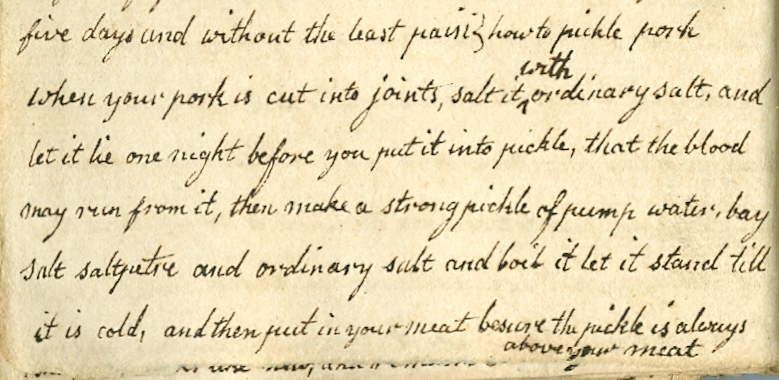 five days and without the least pain} how to pickle pork
with
when your pork is cut into joints, salt it ^ ordinary salt, and
let it lie one night before you put it into pickle, that the blood
may run from it, then make a strong pickle of pump water, bay
salt saltpetre and ordinary salt and boil it let it stand till
it is cold, and then put in your meat besure the pickle is always
above your meat